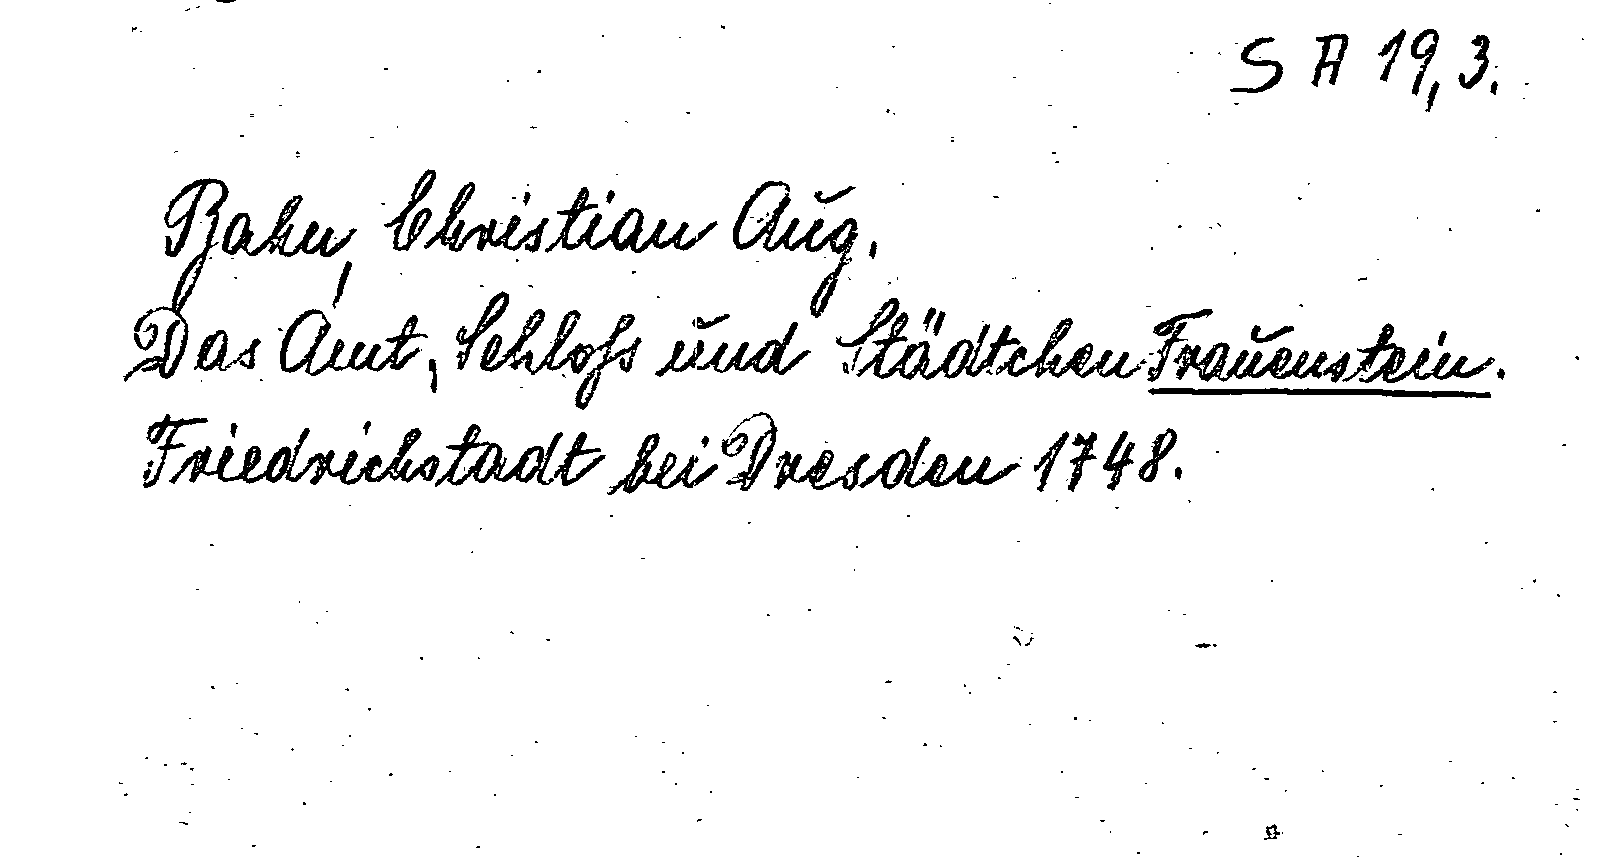 S A 19,3.
Bahn, Christian Aug.
Das Amt, Schloß und Städtchen Frauenstein.
Friedrichstadt bei Dresden 1748.